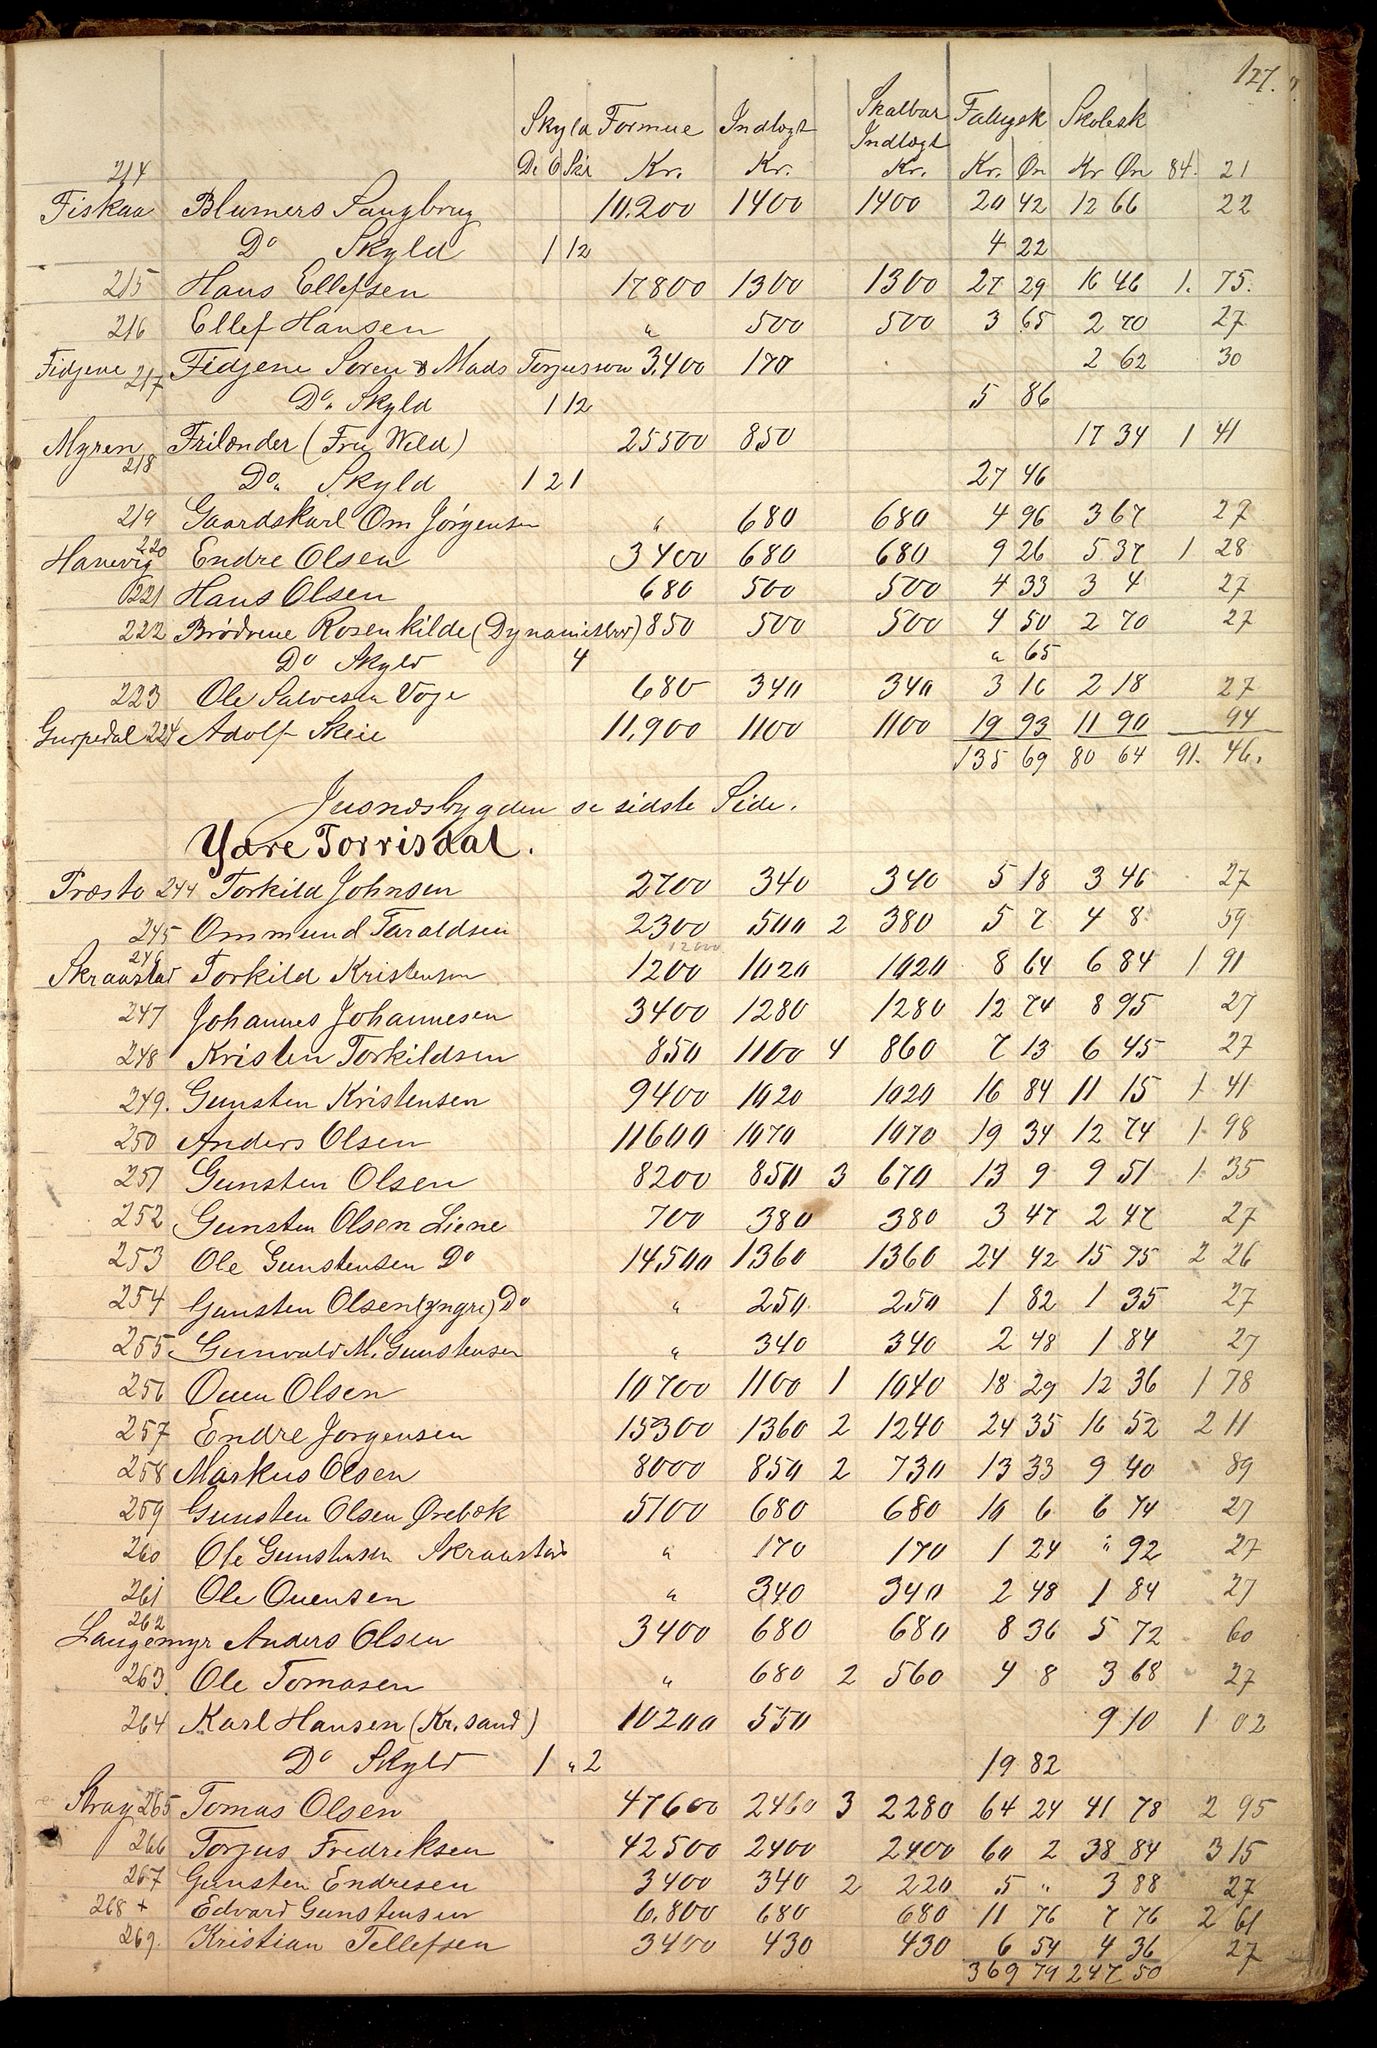 127.
Skyld Formue Indtægt Skatbar Indtægt Fattigsk Skolesk
D. O Sk Kr. Kr. Kr. Kr. Øn Kr Øn 84. 21
214
Fiskaa Blumers Saugbrug 10.200 1400 1400 20 42 12 66 22
Do Skyld 1 12 4 22
215 Hans Ellefsen 17800 1300 1300 27 29 16 46 1. 75.
216 Ellef Hansen " 500 500 3 65 2 70 27
Fidjene 217 Fidjene Søren & Mads Torjusson 3.400 170 2 62 30
Do. Skyld 1 12 5 86
Myren 218 Frilænder (Fru Wild) 25500 850 17 34 1 41
Do. Skyld 1 2 1 27 46
219 Gaardskarl Om Jørgensen " 680 680 4 96 3 67 27
Hanevig 220 Endre Olsen 3400 680 680 9 26 5 37 1 28
221 Hans Olsen 680 500 500 4 33 3 4 27
222 Brødrene Rosenkilde (Dynamitbr) 850 500 500 4 50 2 70 27
Do Skyld 4 " 65
223 Ole Salvesen Voje 680 340 340 3 16 2 18 27
Gurpedal 224 Adolf Skeie 11,900 1100 1100 19 93 11 90 94
135 69 80 64 91. 46.
Jusnæsbygden se sidste Side.
Ydre Torrisdal.
Præstø 244 Torkild Johnsen 2700 340 340 5 18 3 46 27
245 Ommund Taraldsen 2300 500 2 380 5 7 4 8 59
12000
Skraastad 246 Torkild Kristensen 1200 1020 1020 8 64 6 84 1 91
247 Johannes Johannesen 3400 1280 1280 12 74 8 95 27
248 Kristen Torkildsen 850 1100 4 860 7 13 6 45 27
249. Gunsten Kristensen 9400 1020 1020 16 84 11 15 1 41
250 Anders Olsen 11600 1070 1070 19 34 12 74 1 98
251 Gunsten Olsen 8200 850 3 670 13 9 9 51 1 35
252 Gunsten Olsen Liene 700 380 380 3 47 2 47 27
253 Ole Gunstensen Do 14500 1360 1360 24 42 15 75 2 26
254 Gunsten Olsen (yngre) Do " 250 250 1 82 1 35 27
255 Gunvald M. Gunstensen " 340 340 2 48 1 84 27
256 Ouen Olsen 10700 1100 1 1040 18 29 12 36 1 78
257 Endre Jørgensen 15300 1360 2 1240 24 35 16 52 2 11
258 Markus Olsen 8000 850 2 730 13 33 9 40 89
259 Gunsten Olsen Ørebæk 5100 680 680 10 6 6 74 27
260 Ole Gunstensen Skraastad " 170 170 1 24 " 92 27
261 Ole Ouensen " 340 340 2 48 1 84 27
262 Langemyr Anders Olsen 3400 680 680 8 36 5 72 60
263. Ole Tomasen " 680 2 560 4 8 3 68 27
264 Karl Hansen (Kr. sand) 10200 550 9 10 1 02
Do Skyld 1 " 2 19 82
Stray 265 Tomas Olsen 47600 2460 3 2280 64 24 41 78 2 95
266 Torjus Fredriksen 42500 2400 2400 60 2 38 84 3 15
267 Gunsten Endresen 3400 340 2 220 5 " 3 88 27
268 + Edvard Gunstensen 6.800 680 680 11 76 7 76 2 61
269. Kristian Tellefsen 3400 430 430 6 54 4 36 27
369 79 247 50